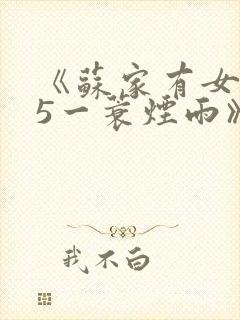 《蘇家有女
5一蓑煙雨》
我不白